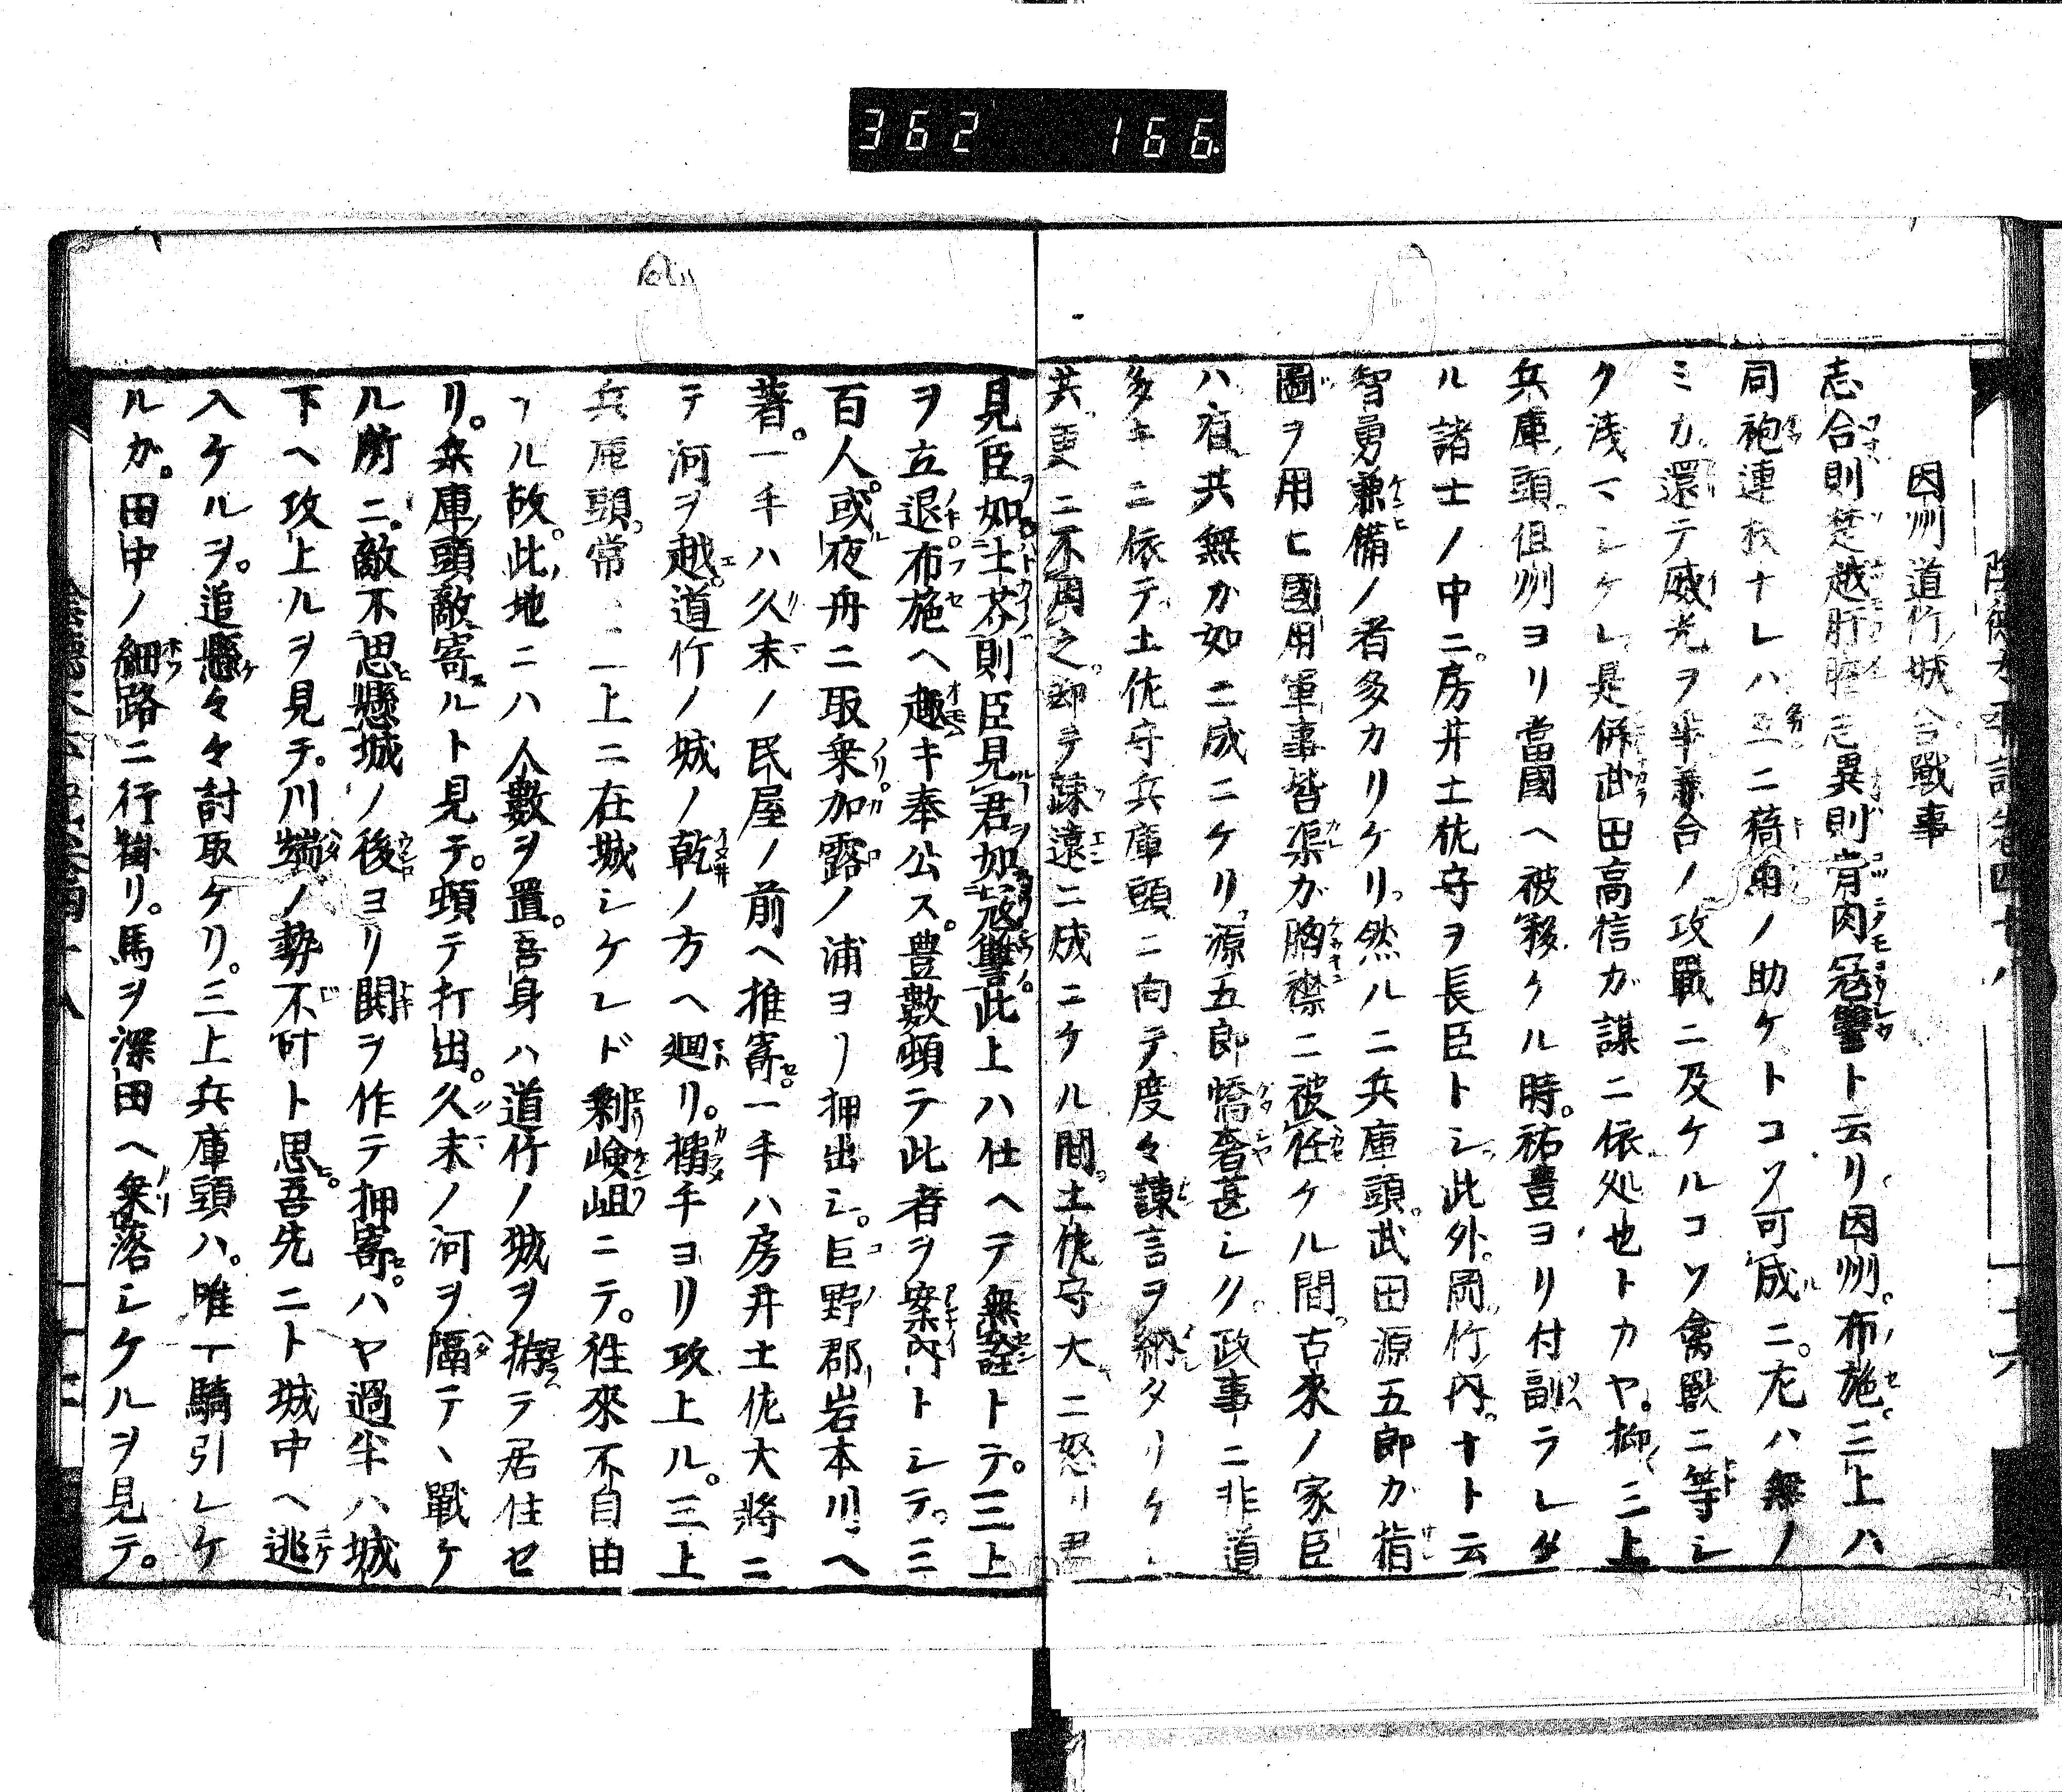 362 166
因州道竹城合戰事
志合則楚越肝膽志異則骨肉冦讐ト云リ因州布施三上ハ
同袍連枝ナレハ互ニ犄角ノ助ケトコソ可成ニ左ハ無ノ
ミカ還テ威光ヲ爭兼合ノ攻戰ニ及ケルコソ禽獸ニ等シ
ク淺マシケレ是併武田高信ガ謀ニ依処也トカヤ抑三上
兵庫頭但州ヨリ當國ヘ被移ケル時祐豊ヨリ付副ラレタ
ル諸士ノ中ニ房井土佐守ヲ長臣トシ此外岡竹内ナト云
智勇兼備ノ者多カリケリ然ルニ兵庫頭武田源五郎カ指
圖ヲ用ヒ國用軍事皆渠が胸襟ニ被任ケル間古來ノ家臣
ハ有共無か如ニ成ニケリ源五郎憍奢甚シク政事ニ非道
多キニ依テ土佐守兵庫頭ニ向テ度々諫言ヲ納タリケレ
共更ニ不用之却テ踈遠ニ成ニケル間土佐守大ニ怒リ君
見臣如土芥則臣見君如冦讐此上ハ仕ヘテ無詮トテ三上
ヲ立退布施ヘ趣キ奉公ス豊數頓テ此者ヲ案内トシテ三
百人或夜舟ニ取乗加露ノ浦ヨリ押出シ巨野郡岩本川ヘ
著一手ハ久末ノ民屋ノ前ヘ推寄一手ハ房井土佐大將ニ
テ河ヲ越道竹ノ城ノ乾ノ方ヘ廻リ搦手ヨリ攻上ル三上
兵庫頭常ニ二上ニ在城シケレド剰嶮岨ニテ徃來不自由
ナル故此地ニハ人數ヲ置吾身ハ道竹ノ城ヲ拵テ居住セ
リ兵庫頭敵寄ルト見テ頓テ打出久末ノ河ヲ隔テヽ戰ケ
ル所ニ敵不思懸城ノ後ヨリ鬨ヲ作テ押寄ハヤ過半ハ城
下ヘ攻上ルヲ見テ川端ノ勢不叶ト思吾先ニト城中ヘ逃
入ケルヲ追懸々々討取ケリ三上兵庫頭ハ唯一騎引レケ
ルカ田中ノ細路ニ行掛リ馬ヲ深田ヘ乗落シケルヲ見テ